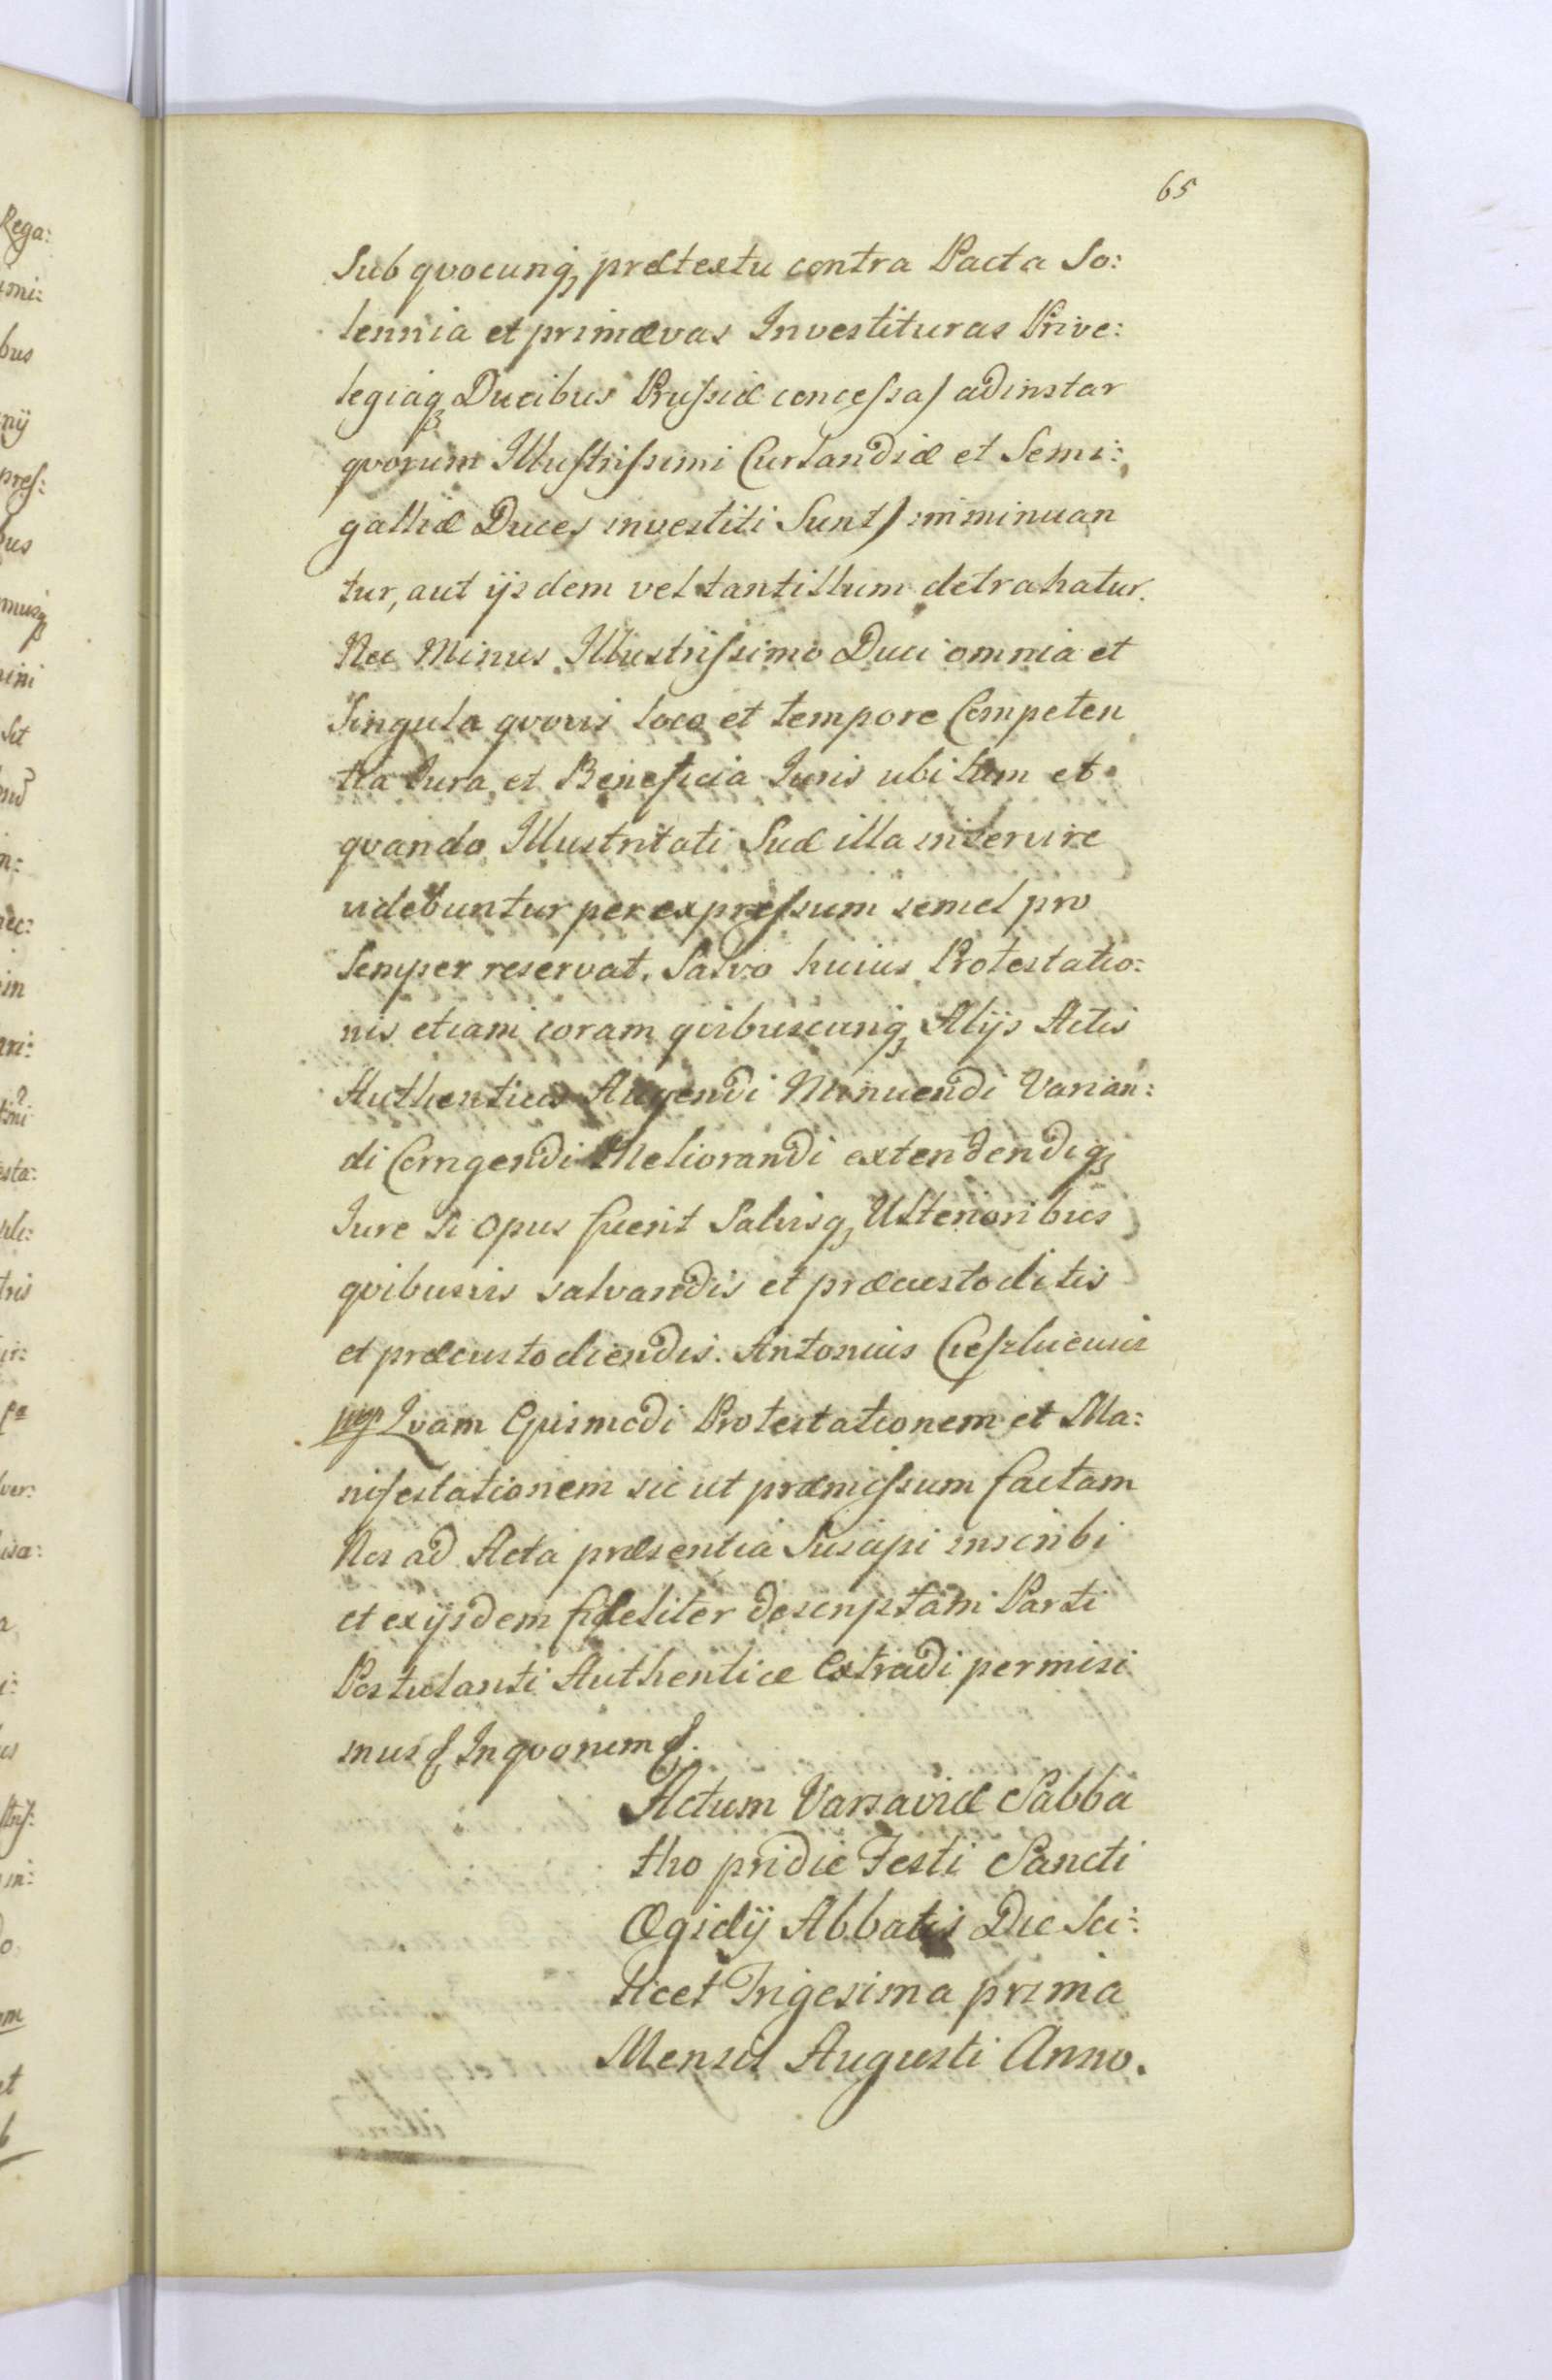 65
Sub qvocunq, prætextu contra Pacta So:
lennia et primævas Investituras Prive:
legiaq Ducibus Prussiæ concessas adinstar
qvorum Illustrissimi Curlandiæ et Semi:
galliæ Duces investiti Sunt) imminuan
tur, aut ijsdem vel tantillum detrahatur.
Nec Minus Illustrissimo Duci omnia et
Singula qvovis loco et tempore Competen
tia Jura et Beneficia Juris ubi tum et
qvando Illustritati Suæ illa inservire
videbuntur per expressum semel pro
Semper reservat. Salvo huius Protestatio:
nis etiam coram qvibuscunq, Alijs Actis
Authenticis Augendi Minuendi Varian:
di Corrigendi Meliorandi extendendiq,
Jure Si Opus fuerit Salvisq, Ulterioribus
qvibusvis salvandis et præcustoditis
et præcustodiendis. Antonius
Qvam Ejusmodi Protestationem et Ma:
nifestationem sic ut præmissum factam
Nos ad Acta præsentia Suscipi inscribi
et ex ijsdem fideliter descriptam Parti
Postulanti Authentice Extradi permisi
mus Inqvorum
Actum Varsaviæ Sabba
tho pridie Festi Sancti
Ægidij Abbatis Die Sci:
licet Trigesima prima
Mensis Augusti Anno.
Rega:
imi:
bus
nij
pres: